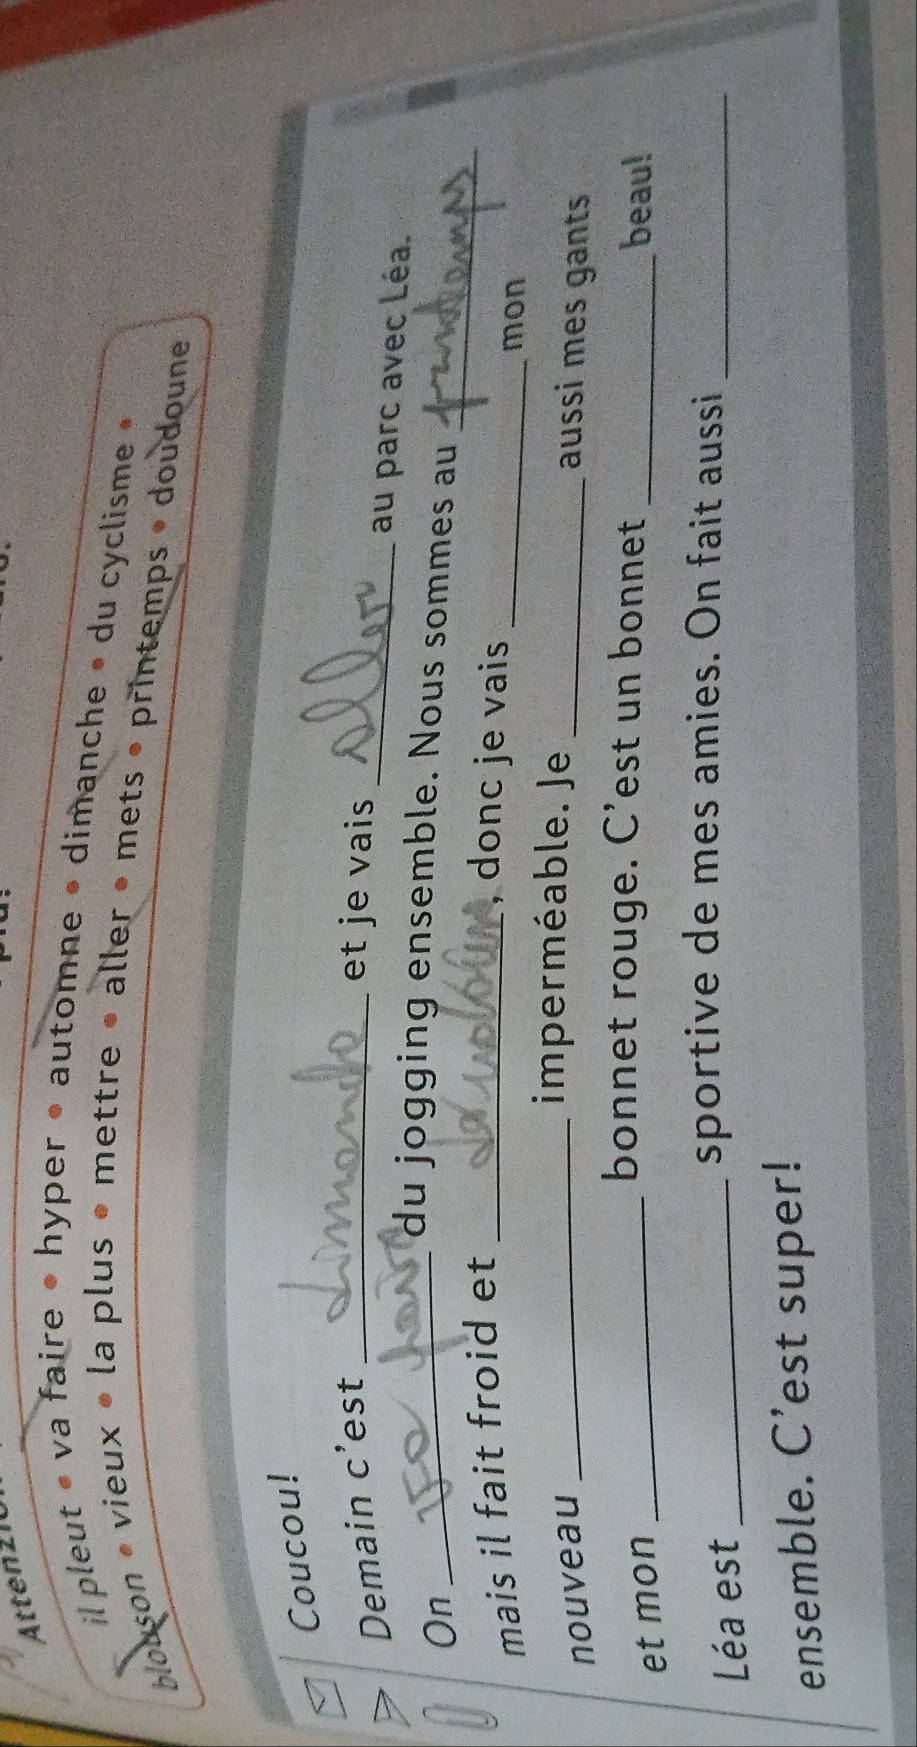 Attenzio
il pleut • va faire • hyper • automne • dimanche • du cyclisme •
blouson • vieux • la plus • mettre • aller • mets • printemps • doudoune
Coucou!
Demain c'est dimanche et je vais aller au parc avec Léa.
On va faire du jogging ensemble. Nous sommes au printemps
mais il fait froid et ____, donc je vais ____ mon
nouveau ____ imperméable. Je ____ aussi mes gants
et mon ____ bonnet rouge. C'est un bonnet ____ beau!
Léa est ____ sportive de mes amies. On fait aussi ____
ensemble. C'est super!